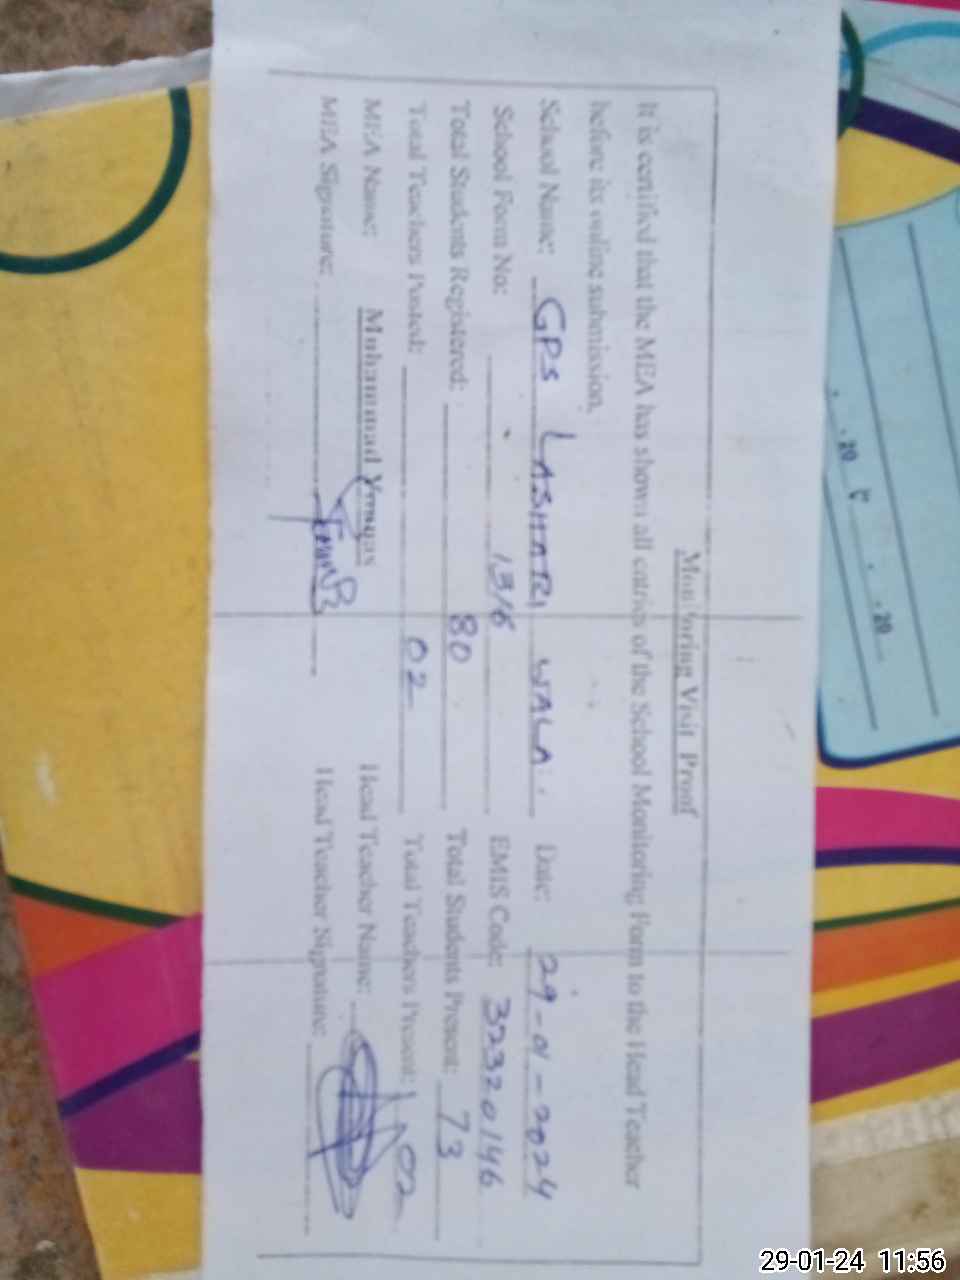 Monitoring Visit Proof
It is certified that the MEA has shown all entries of the School Monitoring Form to the Head Teacher
before its online submission.
School Name: GPS LASHARI WALA Date: 29-01-2024
School Form No: 1316 EMIS Code: 32320146
Total Students Registered: 80 Total Students Present: 73
Total Teachers Posted: 02 Total Teachers Present: 02
MEA Name: Muhammad Head Teacher Name:
MEA Signature: Head Teacher Signature:
. 20 . . 20
29-01-24 11:56